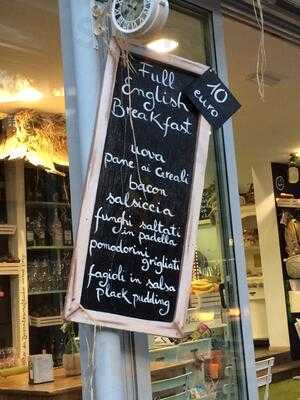 Full
English
Breakfast
10
euro
uova
pane ai cereali
bacon
salsiccia
funghi saltati
in padella
pomodorini
grigliati
fagioli in salsa
plack pudding